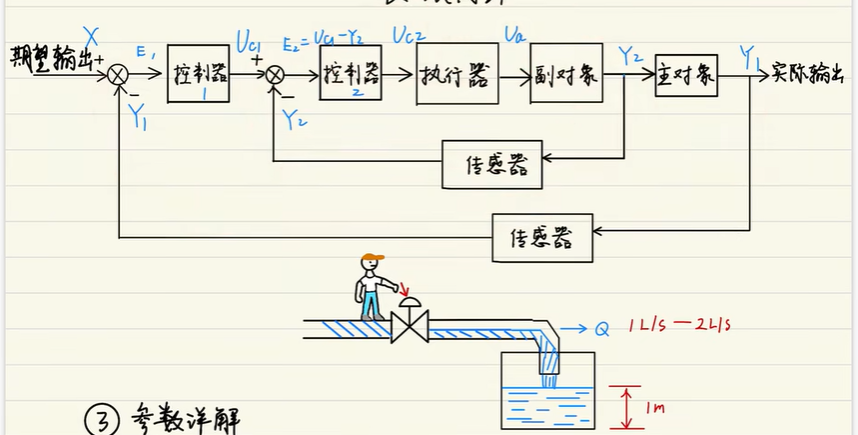 X
期望输出
+
−
E₁
控制器
1
Uc₁
+
−
E₂=Uc₁−Y₂
控制器
2
Uc₂
执行器
Ua
副对象
Y₂
主对象
Y₁
实际输出
Y₁
Y₂
传感器
传感器
Q 1L/s—2L/s
1m
③ 参数详解